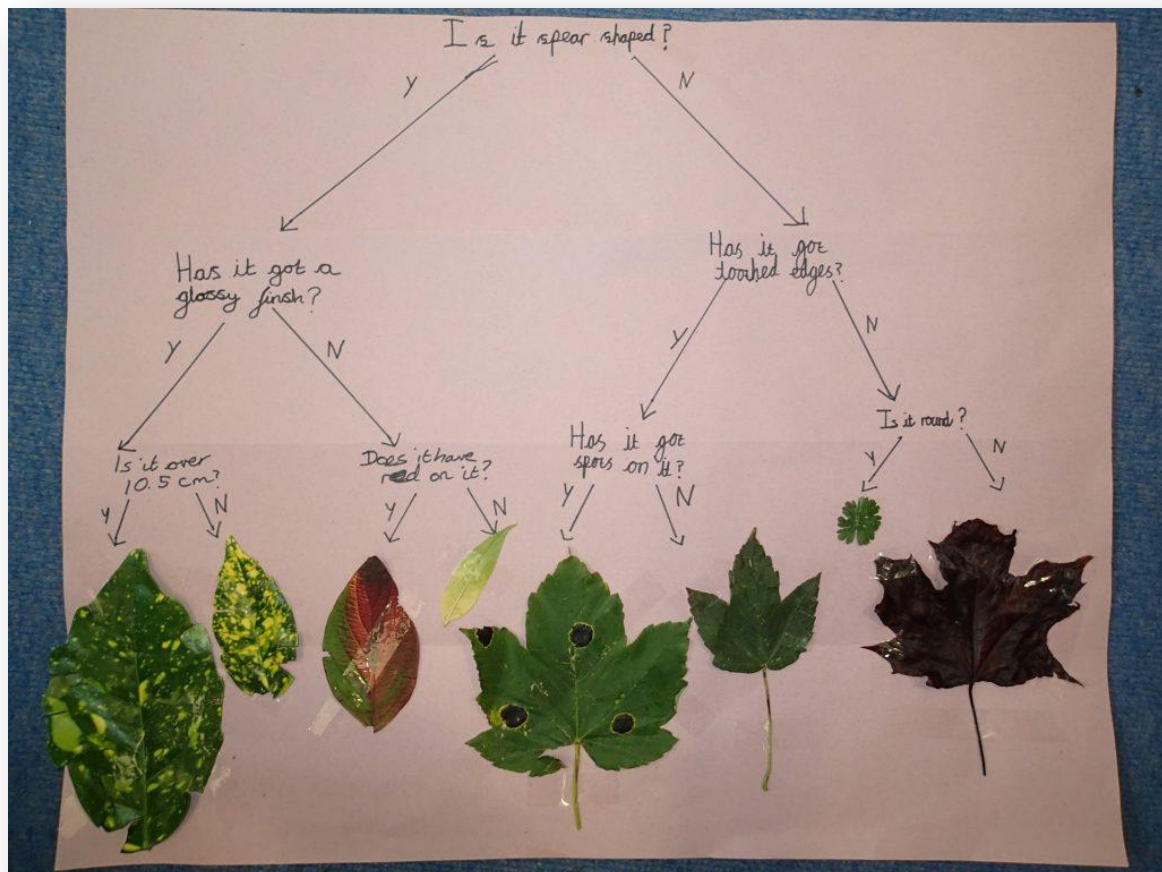 Is it spear shaped?
Y
N
Has it got a
glossy finsh?
Has it got
toothed edges?
Y
N
Y
N
Is it over
10.5 cm?
Does it have
red on it?
Has it got
spots on it?
Is it round?
Y
N
Y
N
Y
N
Y
N